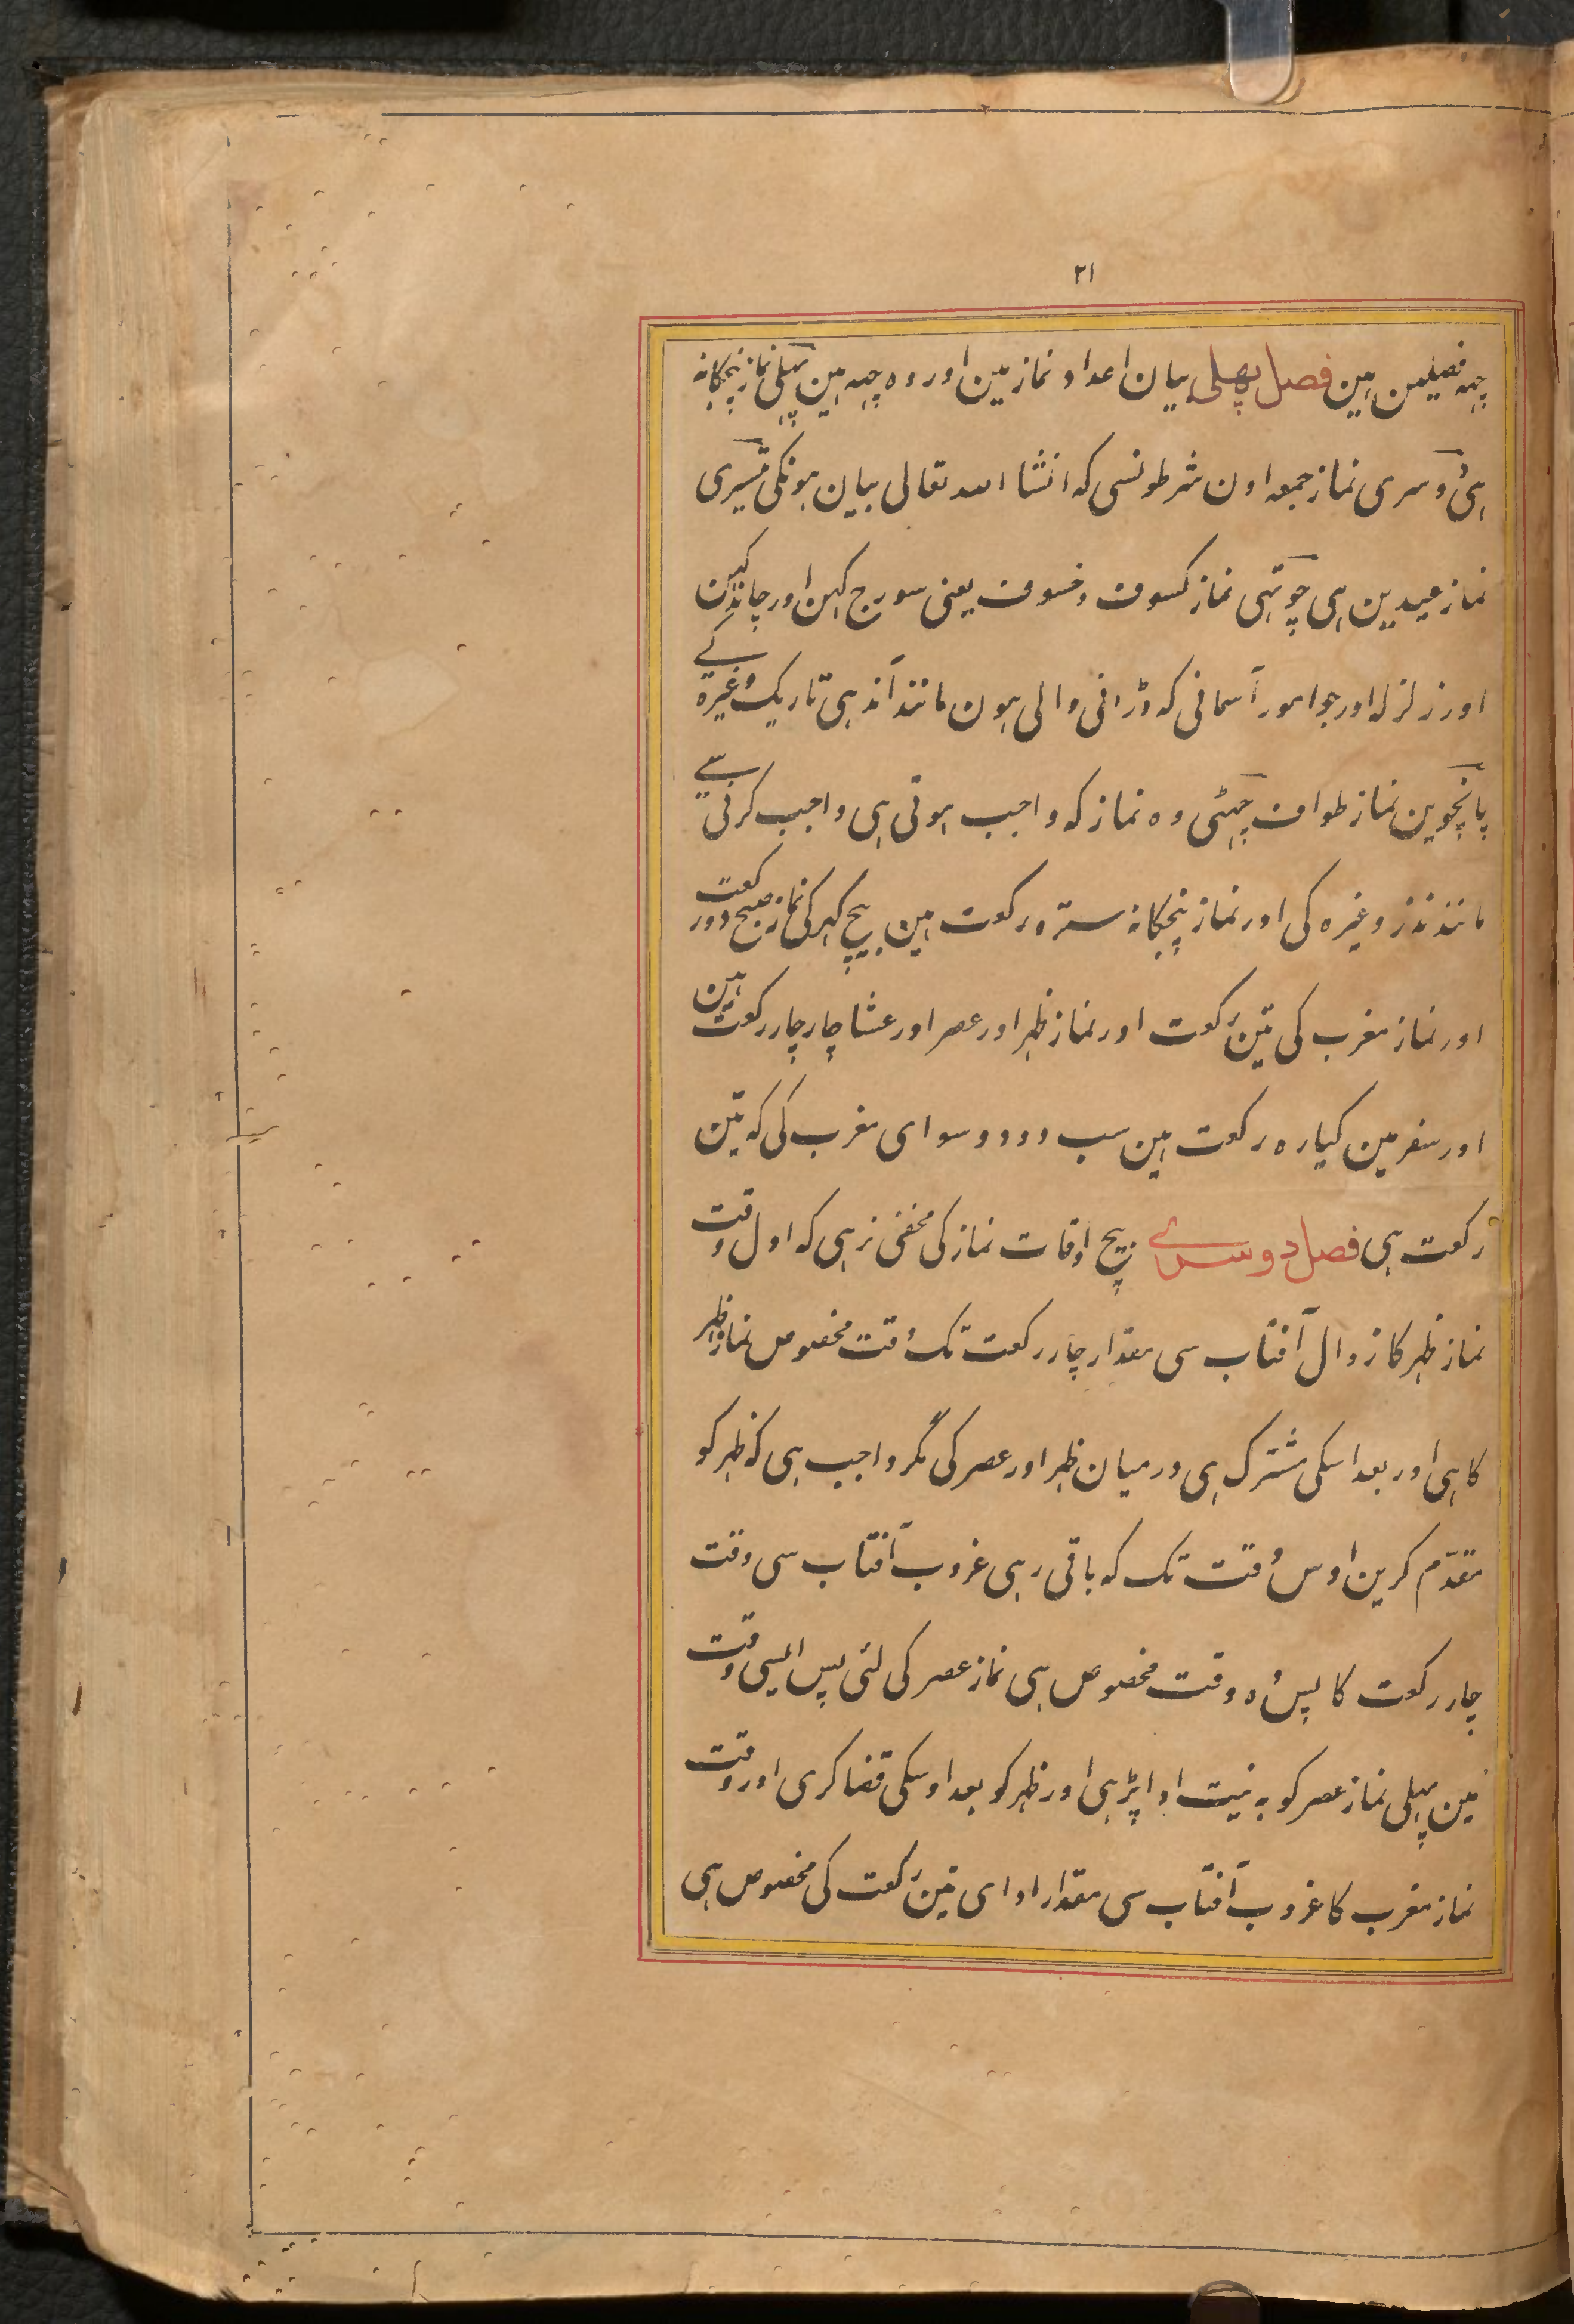 ۲۱
چہہ فصلین ہین فصل پھلی بیان اعداد نماز مین اور وہ چہہ ہین پہلی نماز پنجکانہ
ہی دوسری نماز جمعہ اون شرطونسی کہ انشا اللہ تعالی بیان ہونکی تیسری
نماز عیدین ہی چوتہی نماز کسوف و خسوف یعنی سورج کہن اور چاند کہن
اور زلزلہ اور جو امور آسمانی کہ ڈرانی والی ہون مانند آندہی تاریک وغیرہ کے
پانچوین نماز طواف چہٹی وہ نماز کہ واجب ہوتی ہی واجب کرنی سے
مانند نذر وغیرہ کی اور نماز پنجکانہ سترہ رکعت ہین بیچ کہر کی نماز صبح دو رکعت
اور نماز مغرب کی تین رکعت اور نماز ظہر اور عصر اور عشا چار چار رکعت ہین
اور سفر مین کیارہ رکعت ہین سب دو دو سوای مغرب کی کہ تین
رکعت ہی فصل دوسرے بیچ اوقات نماز کی مخفی نرہی کہ اول وقت
نماز ظہر کا زوال آفتاب سی مقدار چار رکعت تک وقت مخصوص نماز ظہر
کا ہی اور بعد اسکی مشترک ہی درمیان ظہر اور عصر کی مگر واجب ہی کہ ظہر کو
مقدّم کرین اوس وقت تک کہ باقی رہی غروب آفتاب سی وقت
چار رکعت کا پس وہ وقت مخصوص ہی نماز عصر کی لئی پس ایسی وقت
مین پہلی نماز عصر کو بہ نیت ادا پڑہی اور ظہر کو بعد اوسکی قضا کری اور وقت
نماز مغرب کا غروب آفتاب سی مقدار ادای تین رکعت کی مخصوص ہی